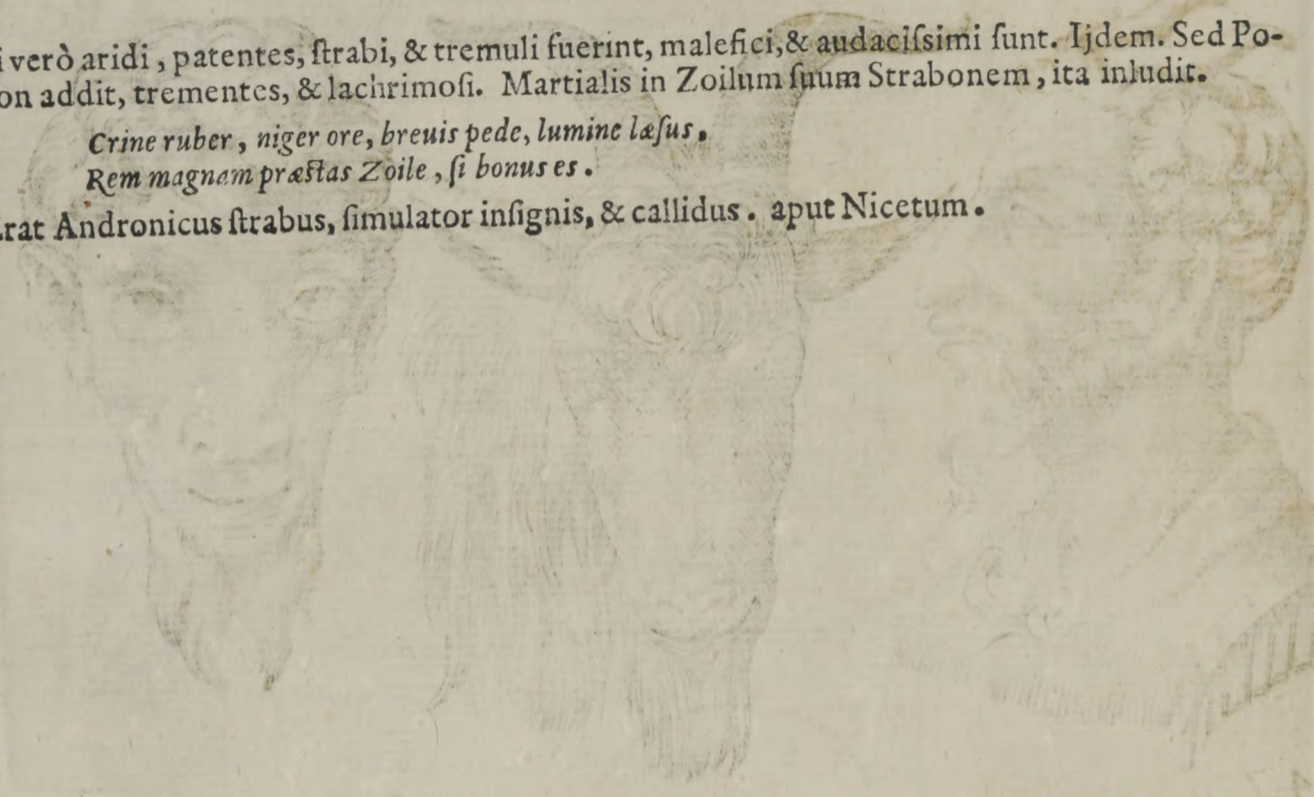 i verò aridi, patentes, ſtrabi, & tremuli fuerint, malefici, & audaciſsimi ſunt. Ijdem. Sed Po-
on addit, trementes, & lachrimoſi. Martialis in Zoilum ſuum Strabonem, ita inludit.
Crine ruber, niger ore, breuis pede, lumine læſus.
Rem magnam præſtas Zoile, ſi bonus es.
rat Andronicus ſtrabus, ſimulator inſignis, & callidus. aput Nicetum.